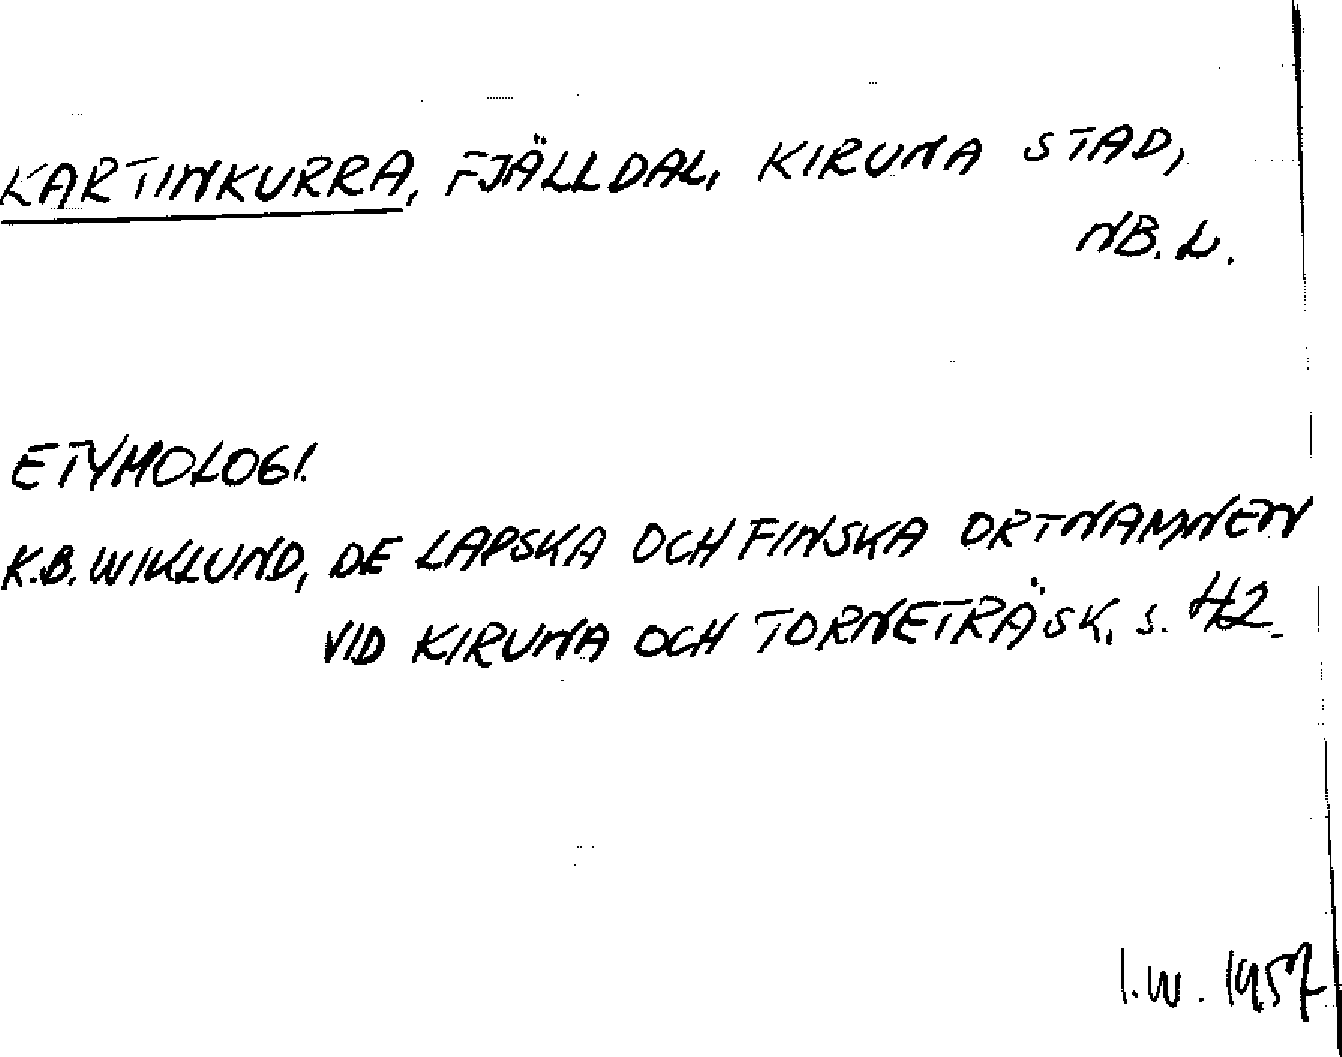 KARTINKURRA, FJÄLLDAL, KIRUNA STAD,
NB. L.
ETYMOLOGI.
K.B. WIKLUND, DE LAPSKA OCH FINSKA ORTNAMNEN
VID KIRUNA OCH TORNETRÄSK, s. 42.
I.W. 1957